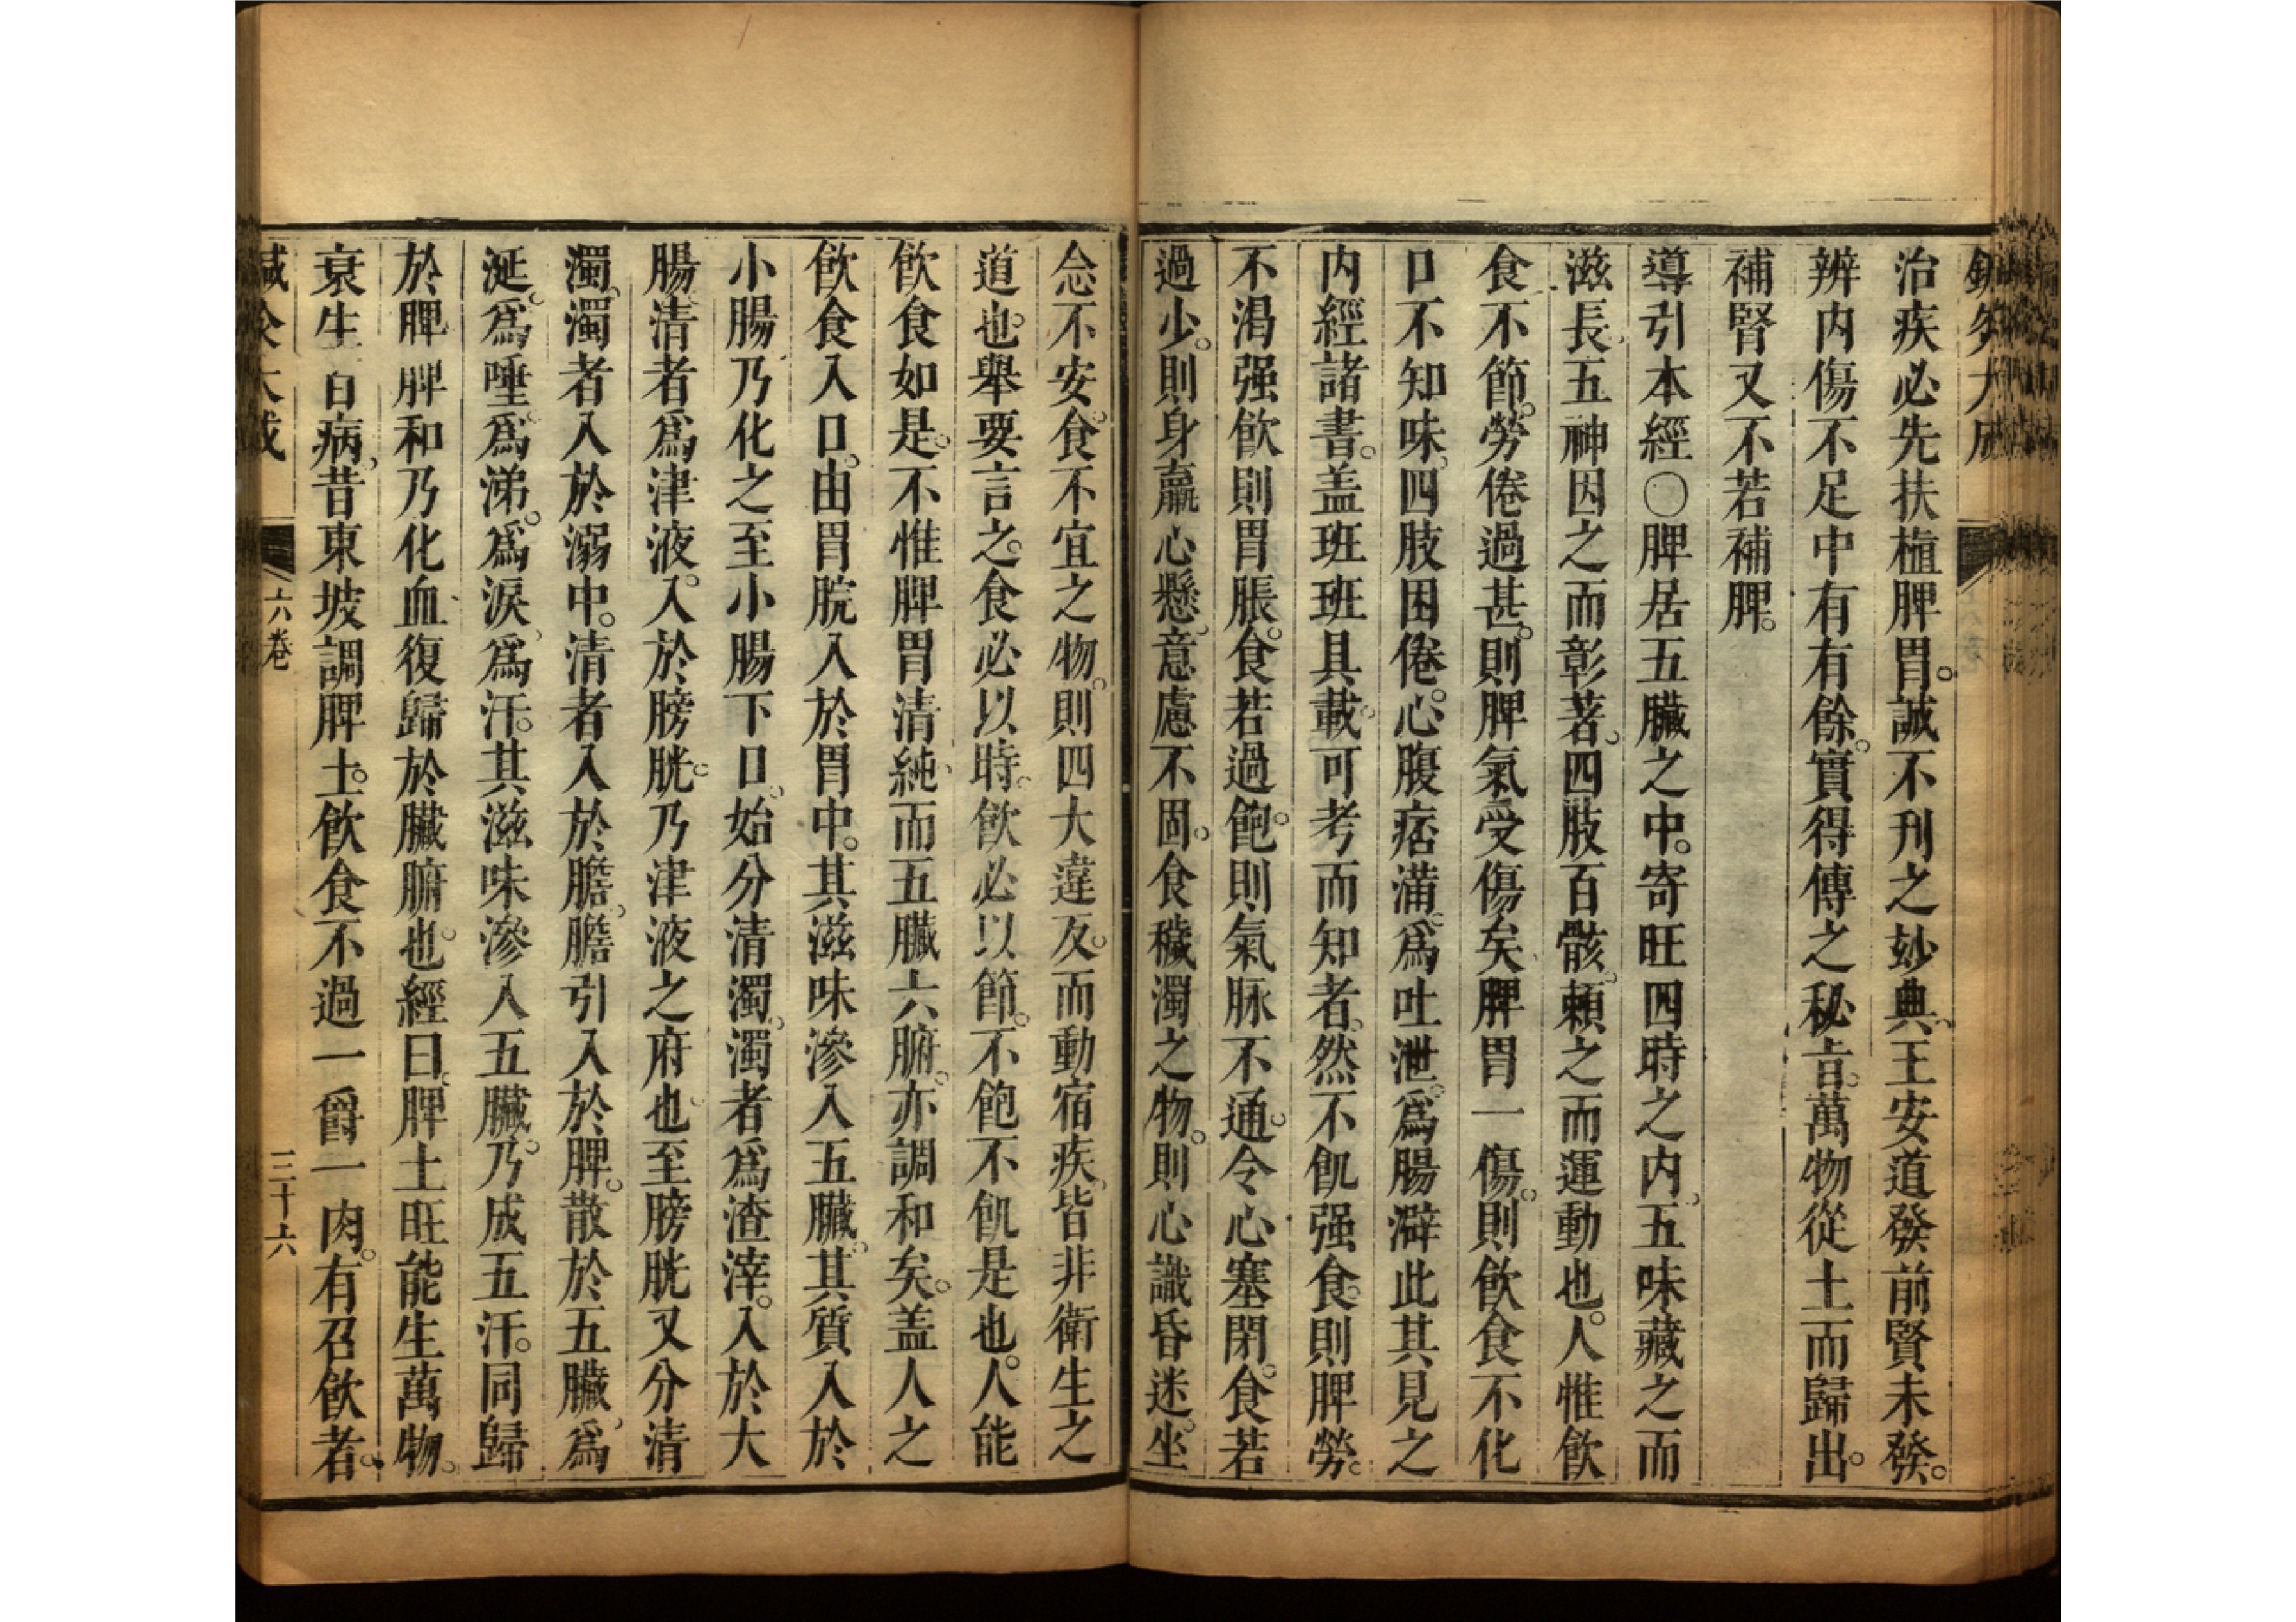 鍼灸大成
治疾必先扶植脾胃。誠不刊之妙典。王安道發前賢未發。
辨内傷不足中有有餘。實得傳之秘旨。萬物從土而歸出。
補腎又不若補脾。
導引本經〇脾居五臟之中。寄旺四時之内。五味藏之而
滋長。五神因之而彰著。四肢百骸。頼之而運動也。人惟飲
食不節。勞倦過甚。則脾氣受傷矣。脾胃一傷。則飲食不化
口不知味。四肢困倦。心腹痞満。爲吐泄。爲腸澼此其見之
内經諸書。盖班班具載。可考而知者。然不飢强食。則脾勞。
不渇强飲則胃脹。食若過飽。則氣脉不通。令心塞閉。食若
過少。則身羸心懸。意慮不固。食穢濁之物。則心識昏迷。坐
念不安。食不宜之物。則四大違反。而動宿疾。皆非衛生之
道也。舉要言之。食必以時。飲必以節。不飽不飢是也。人能
飲食如是。不惟脾胃清純。而五臟六腑。亦調和矣。盖人之
飲食入口。由胃脘入於胃中。其滋味滲入五臟。其質入於
小腸乃化之至小腸下口。始分清濁。濁者爲渣滓。入於大
腸。清者爲津液。入於膀胱。乃津液之府也。至膀胱又分清
濁。濁者入於溺中。清者入於膽。膽引入於脾。散於五臟。爲
涎。爲唾。爲涕。爲淚。爲汗。其滋味滲入五臟。乃成五汗。同歸
於脾。脾和乃化血。復歸於臟腑也。經曰。脾土旺能生萬物。
衰生百病。昔東坡調脾土。飲食不過一爵一肉。有召飲者。
鍼灸大成
六卷
三十六